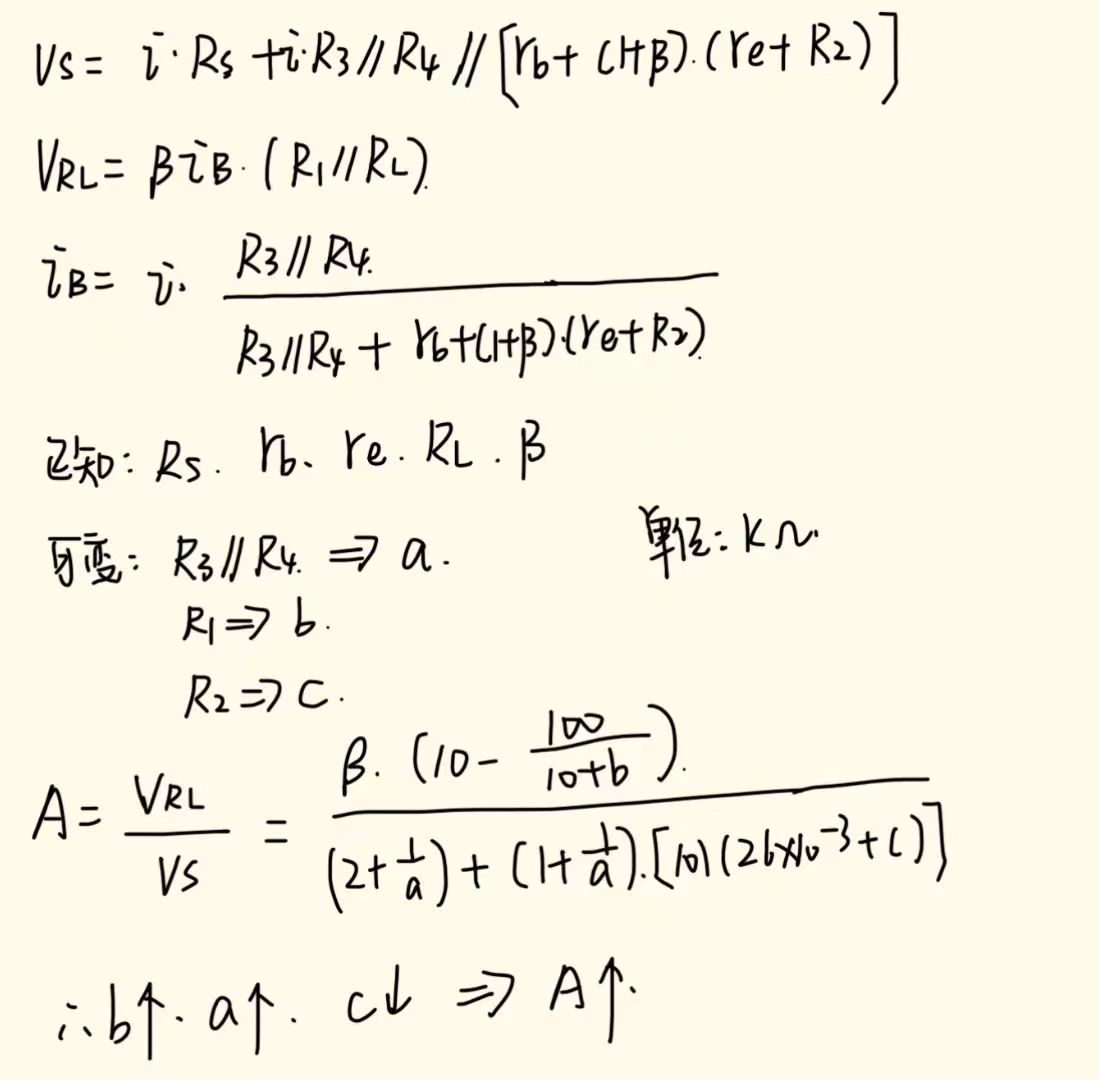 Vs = i·Rs + i·R3//R4//[rb+(1+β)·(re+R2)]
VRL = βiB·(R1//RL).
iB = i· \frac{R3//R4.}{R3//R4 + rb+(1+β)·(re+R2).}
已知: Rs. rb、re. RL. β
可变: R3//R4. ⇒ a.
单位: kΩ.
R1 ⇒ b.
R2 ⇒ C.
A = \frac{VRL}{VS} = \frac{β. (10 - \frac{100}{10+b}).}{(2+\frac{1}{a}) + (1+\frac{1}{a}).[101(26×10^{-3}+C)]}
∴ b↑. a↑. c↓ ⇒ A↑.